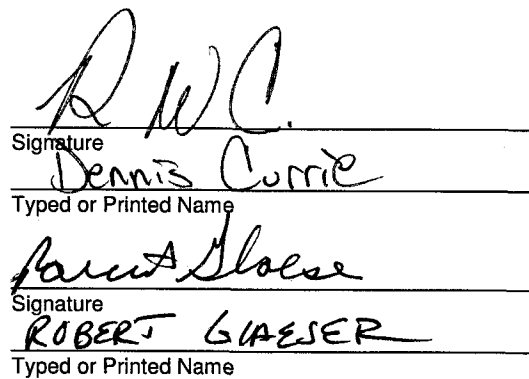 R W C.
Signature
Dennis Currie
Typed or Printed Name
Robert Glaeser
Signature
ROBERT GLAESER
Typed or Printed Name